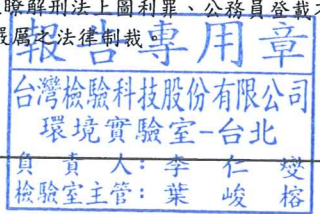 瞭解刑法上圖利罪、公務員登載
嚴厲之法律制裁
報告專用章
台灣檢驗科技股份有限公司
環境實驗室-台北
負責人：李仁燮
檢驗室主管：葉峻榕